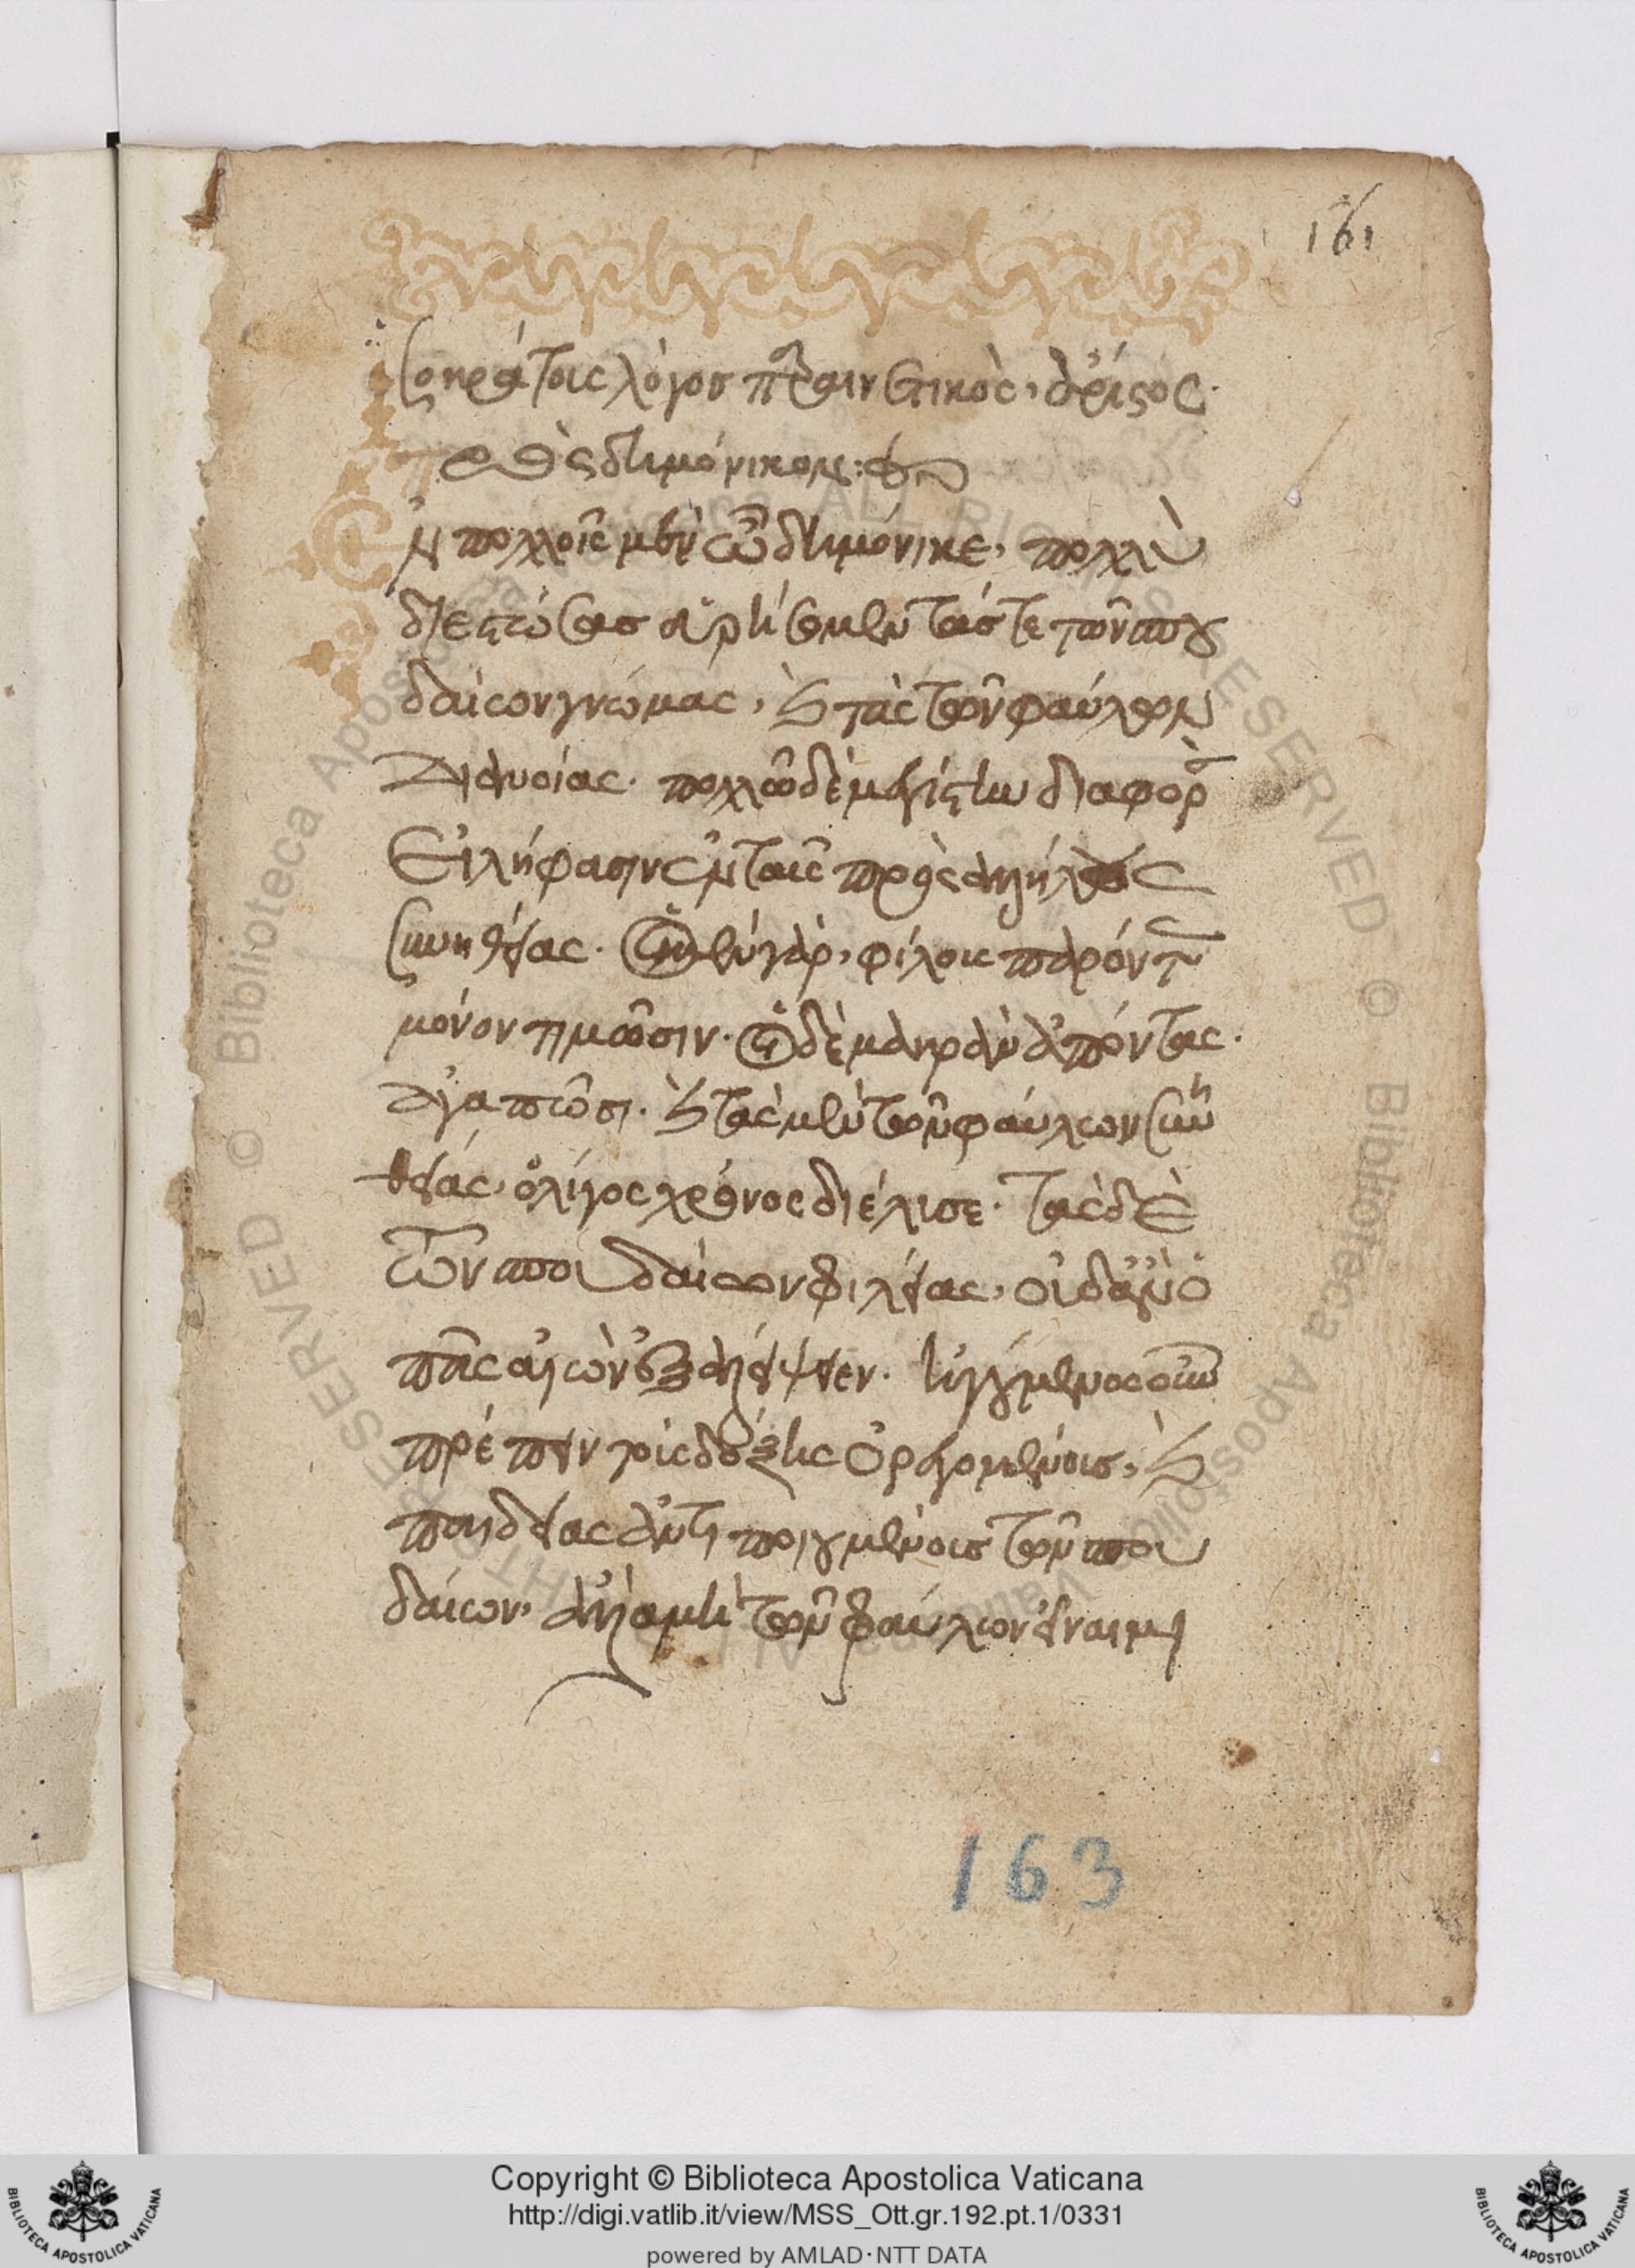 161
Σοκράτοις λόγοσ παραινετικὸς, ἄριστος·
πρὸς διμόνικον:
Ἐν πολλοῖς μὲν ὦ διμόνικε, πολλὺ
διεστώσασ εὑρήσομεν τάς τε τῶν σπου
δαίων γνώμας, καὶ τὰς τῶν φαύλων
διανοίας· πολλῶ δὲ μεγίστην διαφορὰν
Εἰλήφασιν ἐν ταῖς πρὸς ἀλλήλους
συνηθείας· οἱ μὲν γὰρ, φίλοις παρόντας
μόνον τιμῶσιν· οἱ δὲ μακρὰν ἀπόντας·
ἀγαπῶσι· καὶ τὰς μὲν τῶν φαύλων συνη
θείας, ὀλίγος χρόνος διέλισε· τὰς δὲ
τῶν σπουδαίων φιλείας, οὐδ' ἂν ὁ
πᾶς αἰὼν ἐξαλείψειεν· ἡγούμενος οὖν
πρέπειν τοὶς δόξης ὀρεγομένοις, καὶ
παιδείας ἀντιποιουμένοισ τῶν σπου
δαίων, ἀλλὰ μὴ τῶν φαύλων εἶναι μι
163
Copyright © Biblioteca Apostolica Vaticana
http://digi.vatlib.it/view/MSS_Ott.gr.192.pt.1/0331
powered by AMLAD·NTT DATA